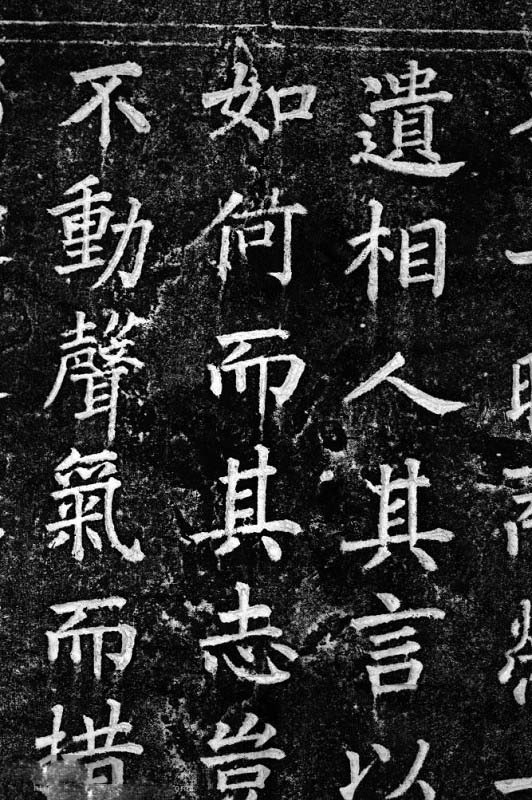 遺相人其言以
如何而其志豈
不動聲氣而措